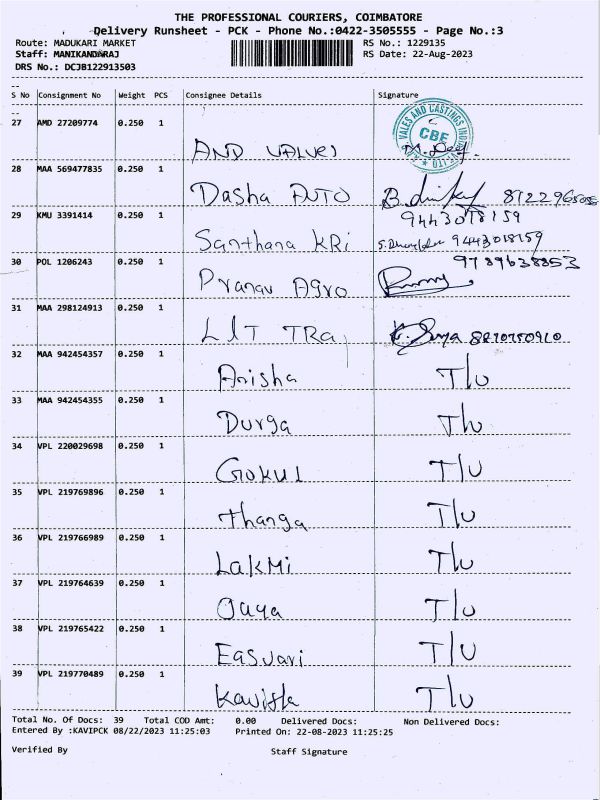 THE PROFESSIONAL COURIERS, COIMBATORE
Delivery Runsheet - PCK - Phone No.:0422-3505555 - Page No.:3
Route: MADUKARI MARKET RS No.: 1229135
Staff: MANIKANDARAJ RS Date: 22-Aug-2023
DRS No.: DCJB122913503
S No Consignment No Weight PCS Consignee Details Signature
27 AMD 27209774 0.250 1
AND VALVES
28 MAA 569477835 0.250 1
Dasha AUTO
29 KMU 3391414 0.250 1 9443018159
Santhana KRi 9443018159
30 POL 1206243 0.250 1 9789638853
Pranav Agro
31 MAA 298124913 0.250 1
LIT TRA
32 MAA 942454357 0.250 1
Anisha T/U
33 MAA 942454355 0.250 1
Durga T/U
34 VPL 220029698 0.250 1
Gokul T/U
35 VPL 219769896 0.250 1
Thanga T/U
36 VPL 219766989 0.250 1
LakMi T/U
37 VPL 219764639 0.250 1
Jaya T/U
38 VPL 219765422 0.250 1
Easvari T/U
39 VPL 219770489 0.250 1
Kavista T/U
Total No. Of Docs: 39 Total COD Amt: 0.00 Delivered Docs: Non Delivered Docs:
Entered By :KAVIPCK 08/22/2023 11:25:03 Printed On: 22-08-2023 11:25:25
Verified By Staff Signature